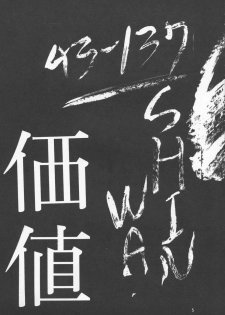 43-137
SHIN
WA
価値
5